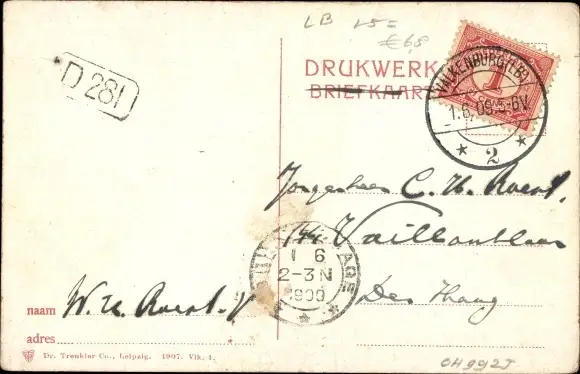 LB 15=
€6,5
D 281
DRUKWERK
BRIEFKAART
1
CENT
VALKENBURG (LB)
1.6.09.5-6V
2
Jongeheer C. H. Roest.
144 Vaillantlaan
Den Haag
1 6
2-3N
naam W. H. Roest.
adres
Dr. Trenkler Co., Leipzig. 1907. Vlk. 1.
OH992J